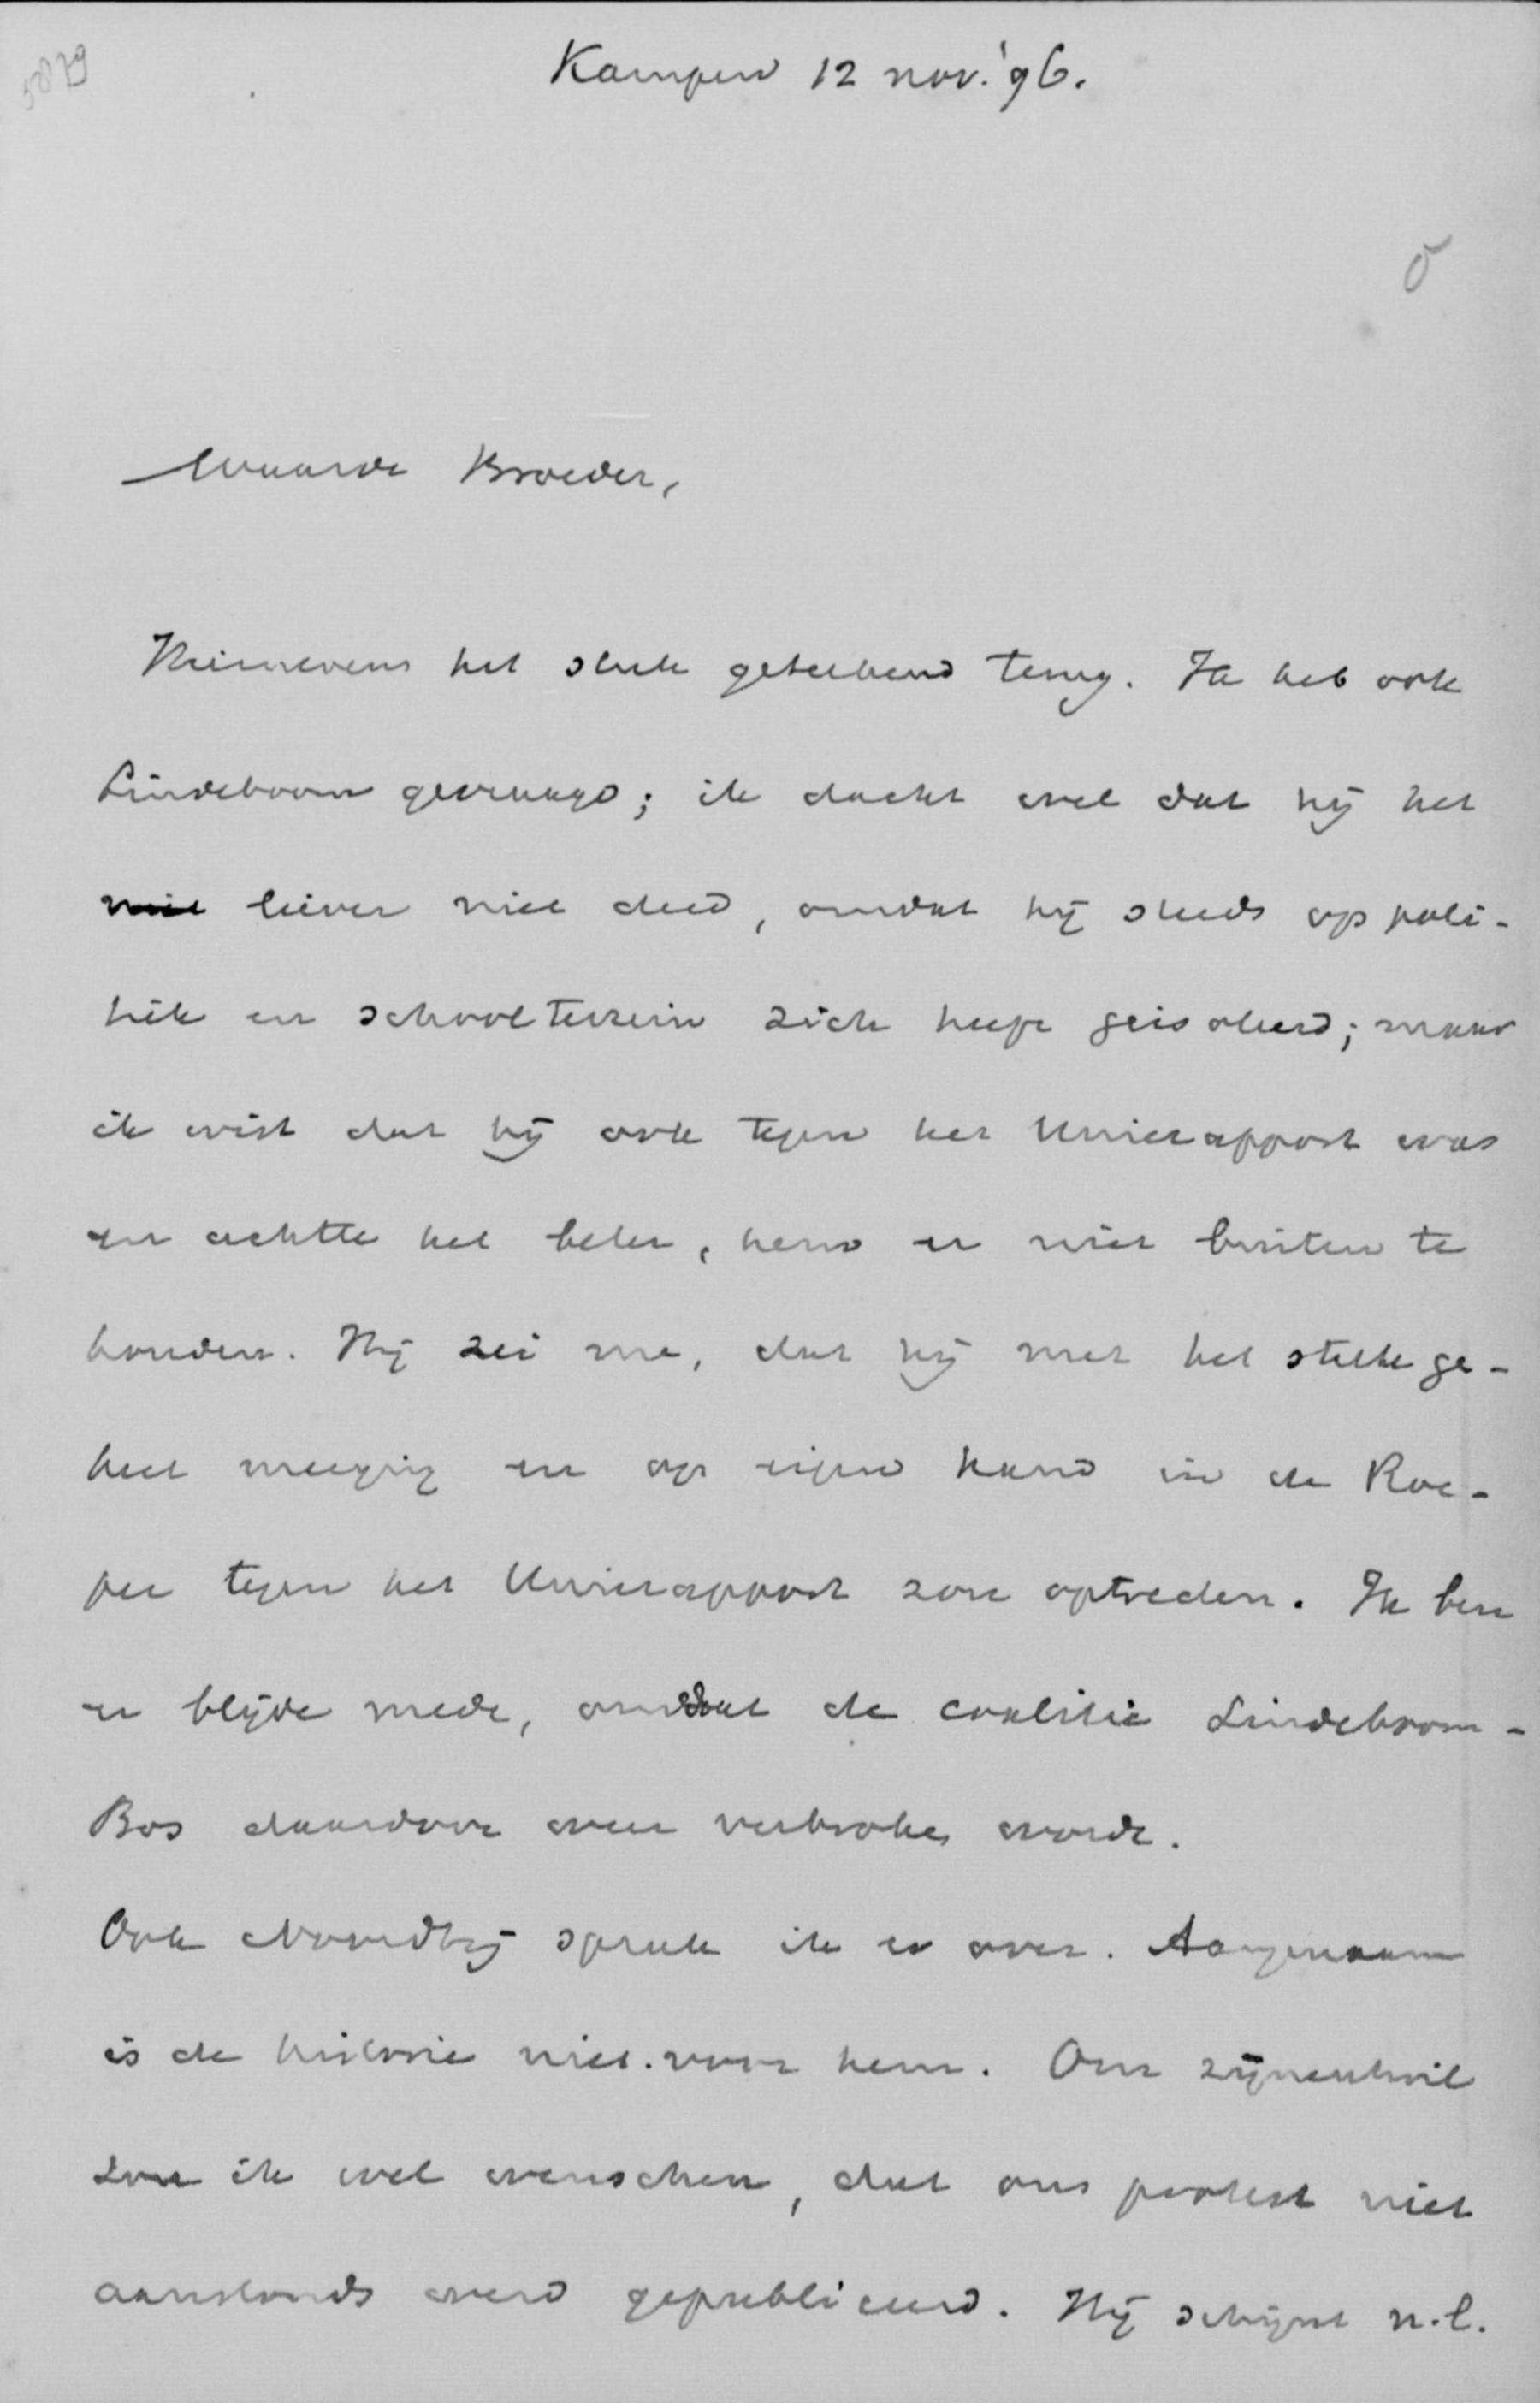 5879
Kampen 12 nov. '96.
Waarde Broeder,
Hiernevens het stuk geteekend terug. Ik heb ook
Lindeboom gevraagd; ik dacht wel dat hij het
niet liever niet deed, omdat hij steeds op poli-
tiek en schoolterrein zich heeft geisoleerd; maar
ik wist dat hij ook tegen het Unierapport was
en achtte het beter, hem er niet buiten te
houden. Hij zei me, dat hij met het stuk ge-
heel meeging en op eigen hand in de Roe-
per tegen het Unierapport zou optreden. Ik ben
er blijde mede, omdat de coalitie Lindeboom-
Bos daardoor weer verbroken wordt.
Ook Noordtzij sprak ik er over. Aangenaam
is de historie niet voor hem. Om zijnentwil
zou ik wel wenschen, dat ons protest niet
aanstonds werd gepubliceerd. Hij schijnt n.l.